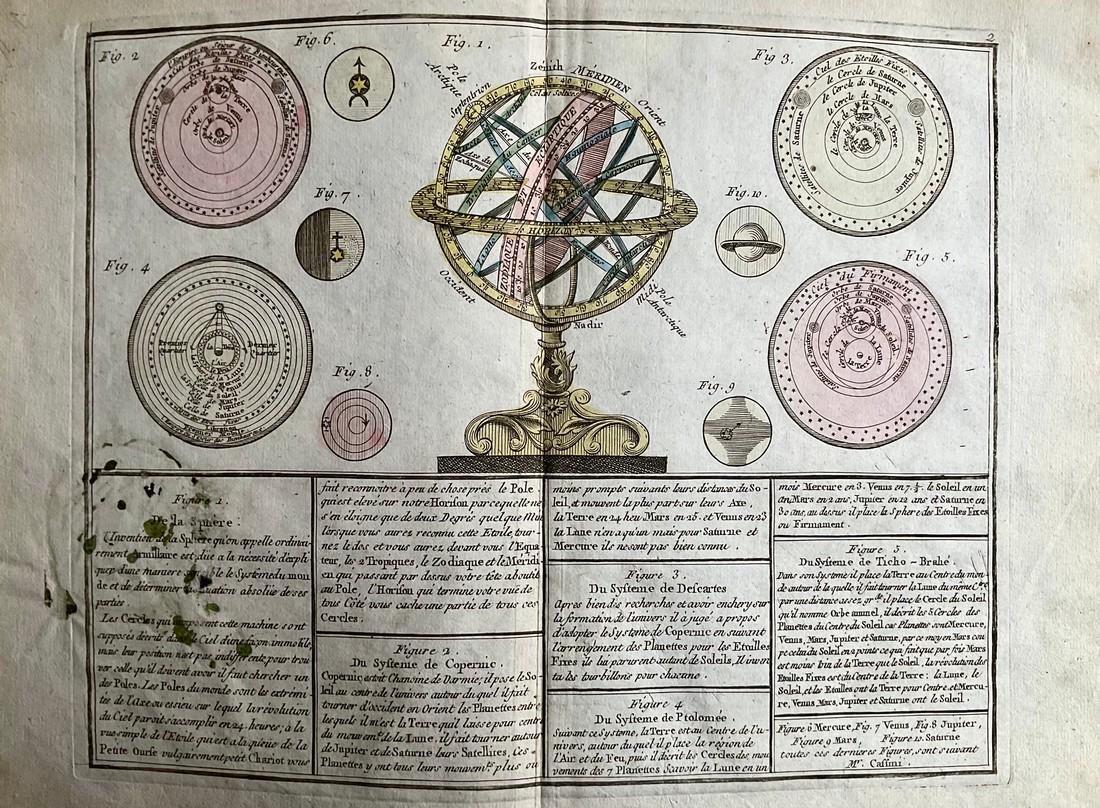 2
Fig. 2
Fig. 6.
Fig. 1.
Fig 3.
Zénith
MÉRIDIEN
Pole
Arctique
Septentrion
Orient
Colure Solstices
ECLIPTIQUE
ET
ZODIAQUE
HORIZON
Occident
Midi
Pole
Antarctique
Nadir
Ciel des Etoilles Fixes
le Cercle de Saturne
le Cercle de Jupiter
le Cercle de Mars
la Terre
Satellites de Saturne
Satellites de Jupiter
Fig. 7.
Fig. 10.
Fig. 4
Fig. 5.
Premier
Quartier
Dernier
Quartier
Celle de Mars
Celle de Jupiter
Celle de Saturne
Ciel du Firmament
Orbe de Saturne
Orbe de Jupiter
Orbe de Mars
la Lune
la Terre
Fig. 8.
Fig. 9
Figure 1.
De la Sphere.
L'Invention de la Sphere qu'on appelle ordinai-
rement Armillaire est düe a la nécésité d'expli-
quer d'une maniere le Systéme du mon
de et de déterminer la situation absolue de ses
parties.
Les Cercles qui composent cette machine sont
supposés décrits dans le Ciel d'une façon immobile,
mais leur position n'est pas indifférente, pour trou
ver celle qu'il doivent avoir il faut chercher un
des Poles. Les Poles du monde sont les extrémi-
tés de l'Axe ou essieu sur lequel la révolution
du Ciel paroit s'accomplir en 24. heures; à la
vue simple de l'Etoile qui est a la queüe de la
Petite Ourse vulgairement petit Chariot vous
fait reconnoitre à peu de chose prés le Pole
qui est elevé sur notre Horison parce qu'elle ne
s'en éloigne que de deux Degrés quelque Min
lorsque vous aurez reconnu cette Etoile, tour-
nez le dos et vous aurez devant vous l'Equa
teur, les 2 Tropiques, le Zodiaque et le Méridi-
en qui passant par dessus votre tête aboutit
au Pole, l'Horison qui termine votre vue de
tous Côté vous cache une partie de tous ces
Cercles.
Figure 2.
Du Systéme de Copernic.
Copernic estoit Chanoine de Warmie; il pose le So-
leil au centre de l'univers autour du quel il fait
tourner d'occident en Orient les Planettes entre
lesquels il m'est la Terre qu'il laisse pour centre
du mouvemt. de la Lune, il fait tourner autour
de Jupiter et de Saturne leurs Satellites, Ces
Planettes y ont tous leurs mouvemts. plus ou
moins prompts suivants leurs distances du So-
leil, et mouvent la plus part sur leurs Axe,
la Terre en 24 heu Mars en 25. et Venus en 23
la Lune n'en a qu'un mais pour Saturne et
Mercure ils ne sont pas bien connu.
Figure 3.
Du Systéme de Descartes
Apres bien des recherches et avoir enchery sur
la formation de l'univers il a jugé a propos
d'adopter le Systeme de Copernic en suivant
l'arrengement des Planettes pour les Etoilles
Fixes ils lui parurent autant de Soleils, Il inven
ta les tourbillons pour chacune.
Figure 4
Du Systéme de Ptolomée.
Suivant ce Systeme, la Terre est au Centre de l'u-
nivers, autour du quel il place la région de
l'Air et du Feu, puis il décrit les Cercles des mou
vements des 7 Planettes Scavoir la Lune en un
mois Mercure en 3. Venus en 7. ½. le Soleil en un
an Mars en 2 ans, Jupiter en 12 ans et Saturne en
30 ans, au dessus il place la Sphere des Etoilles Fixes
ou Firmament.
Figure 5.
Du Systéme de Ticho - Brahé.
Dans son Systeme il place la Terre au Centre du mon-
de autour de la quelle il fait tourner la Lune du méme Ctre.
par une distance assez grde. il place le Cercle du Soleil
qu'il nomme Orbe annuel, il décrit les 5 Cercles des
Planettes du Centre du Soleil ces Planettes sont Mercure,
Venus, Mars, Jupiter et Saturne, par ce moyen Mars cou
pe celui du Soleil en 2 points ce qui fait que par fois Mars
est moins bien de la Terre que le Soleil, la révolution des
Etoilles Fixes est du Centre de la Terre; la Lune, le
Soleil, et les Etoilles ont la Terre pour Centre et Mercu-
re, Venus, Mars, Jupiter et Saturne ont le Soleil.
Figure 6 Mercure, Fig. 7 Venus, Fig. 8 Jupiter,
Figure 9 Mars, Figure 10 Saturne
toutes ces dernieres Figures, sont suivant
Mr. Cassini.